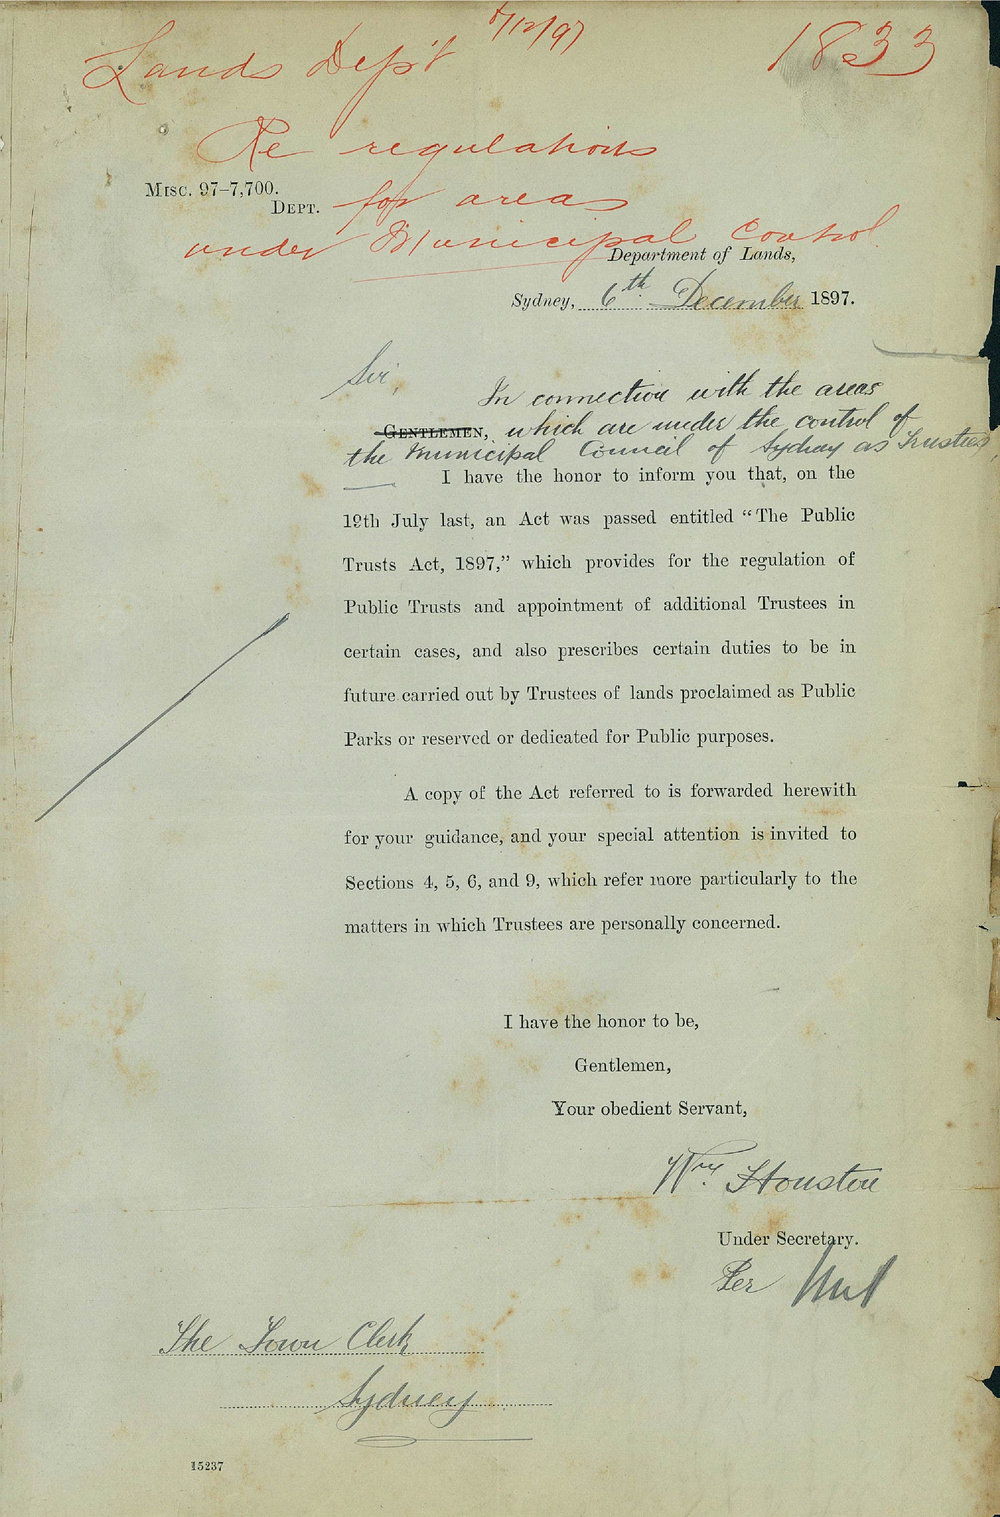 Lands Dep't 8/12/97 1833
Re regulations
MISC. 97-7,700.
DEPT. for areas
under Municipal Control
Department of Lands,
Sydney, 6th December 1897.
Sir,
In connection with the areas
GENTLEMEN, which are under the control of
the Municipal Council of Sydney as Trustees
I have the honor to inform you that, on the
19th July last, an Act was passed entitled “The Public
Trusts Act, 1897,” which provides for the regulation of
Public Trusts and appointment of additional Trustees in
certain cases, and also prescribes certain duties to be in
future carried out by Trustees of lands proclaimed as Public
Parks or reserved or dedicated for Public purposes.
A copy of the Act referred to is forwarded herewith
for your guidance, and your special attention is invited to
Sections 4, 5, 6, and 9, which refer more particularly to the
matters in which Trustees are personally concerned.
I have the honor to be,
Gentlemen,
Your obedient Servant,
Wm. Houston
Under Secretary.
Per
The Town Clerk
Sydney
15237